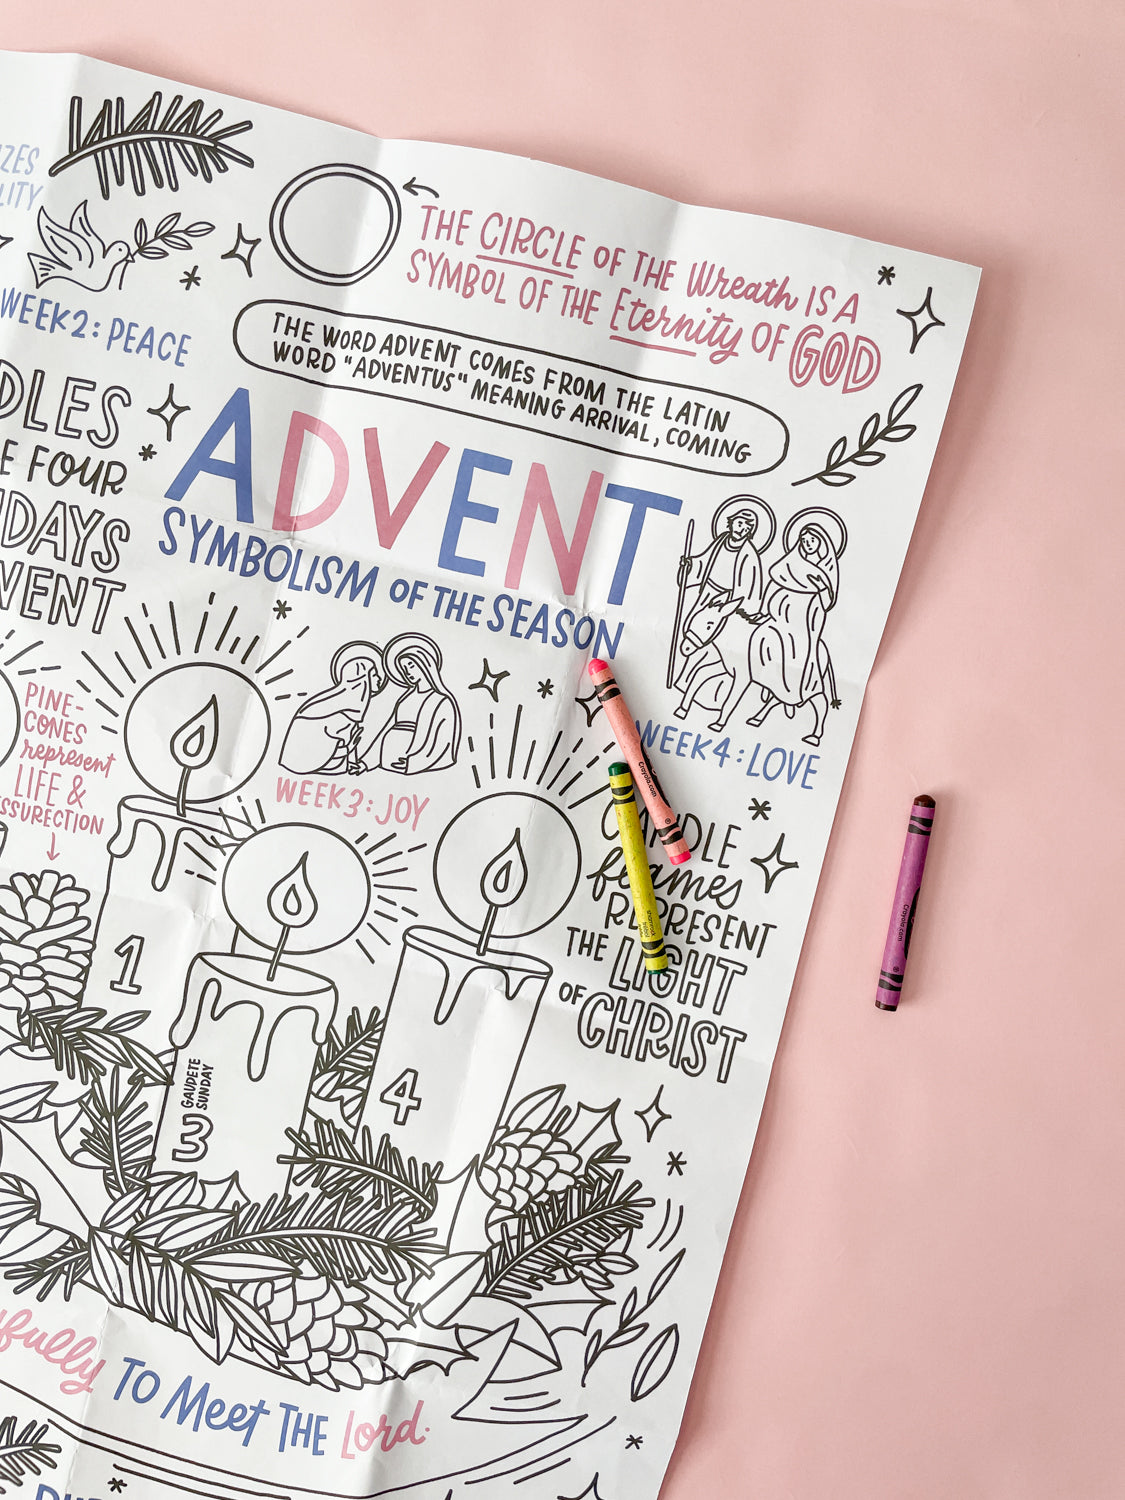 THE CIRCLE OF THE Wreath IS A
SYMBOL OF THE Eternity OF GOD
WEEK 2: PEACE
THE WORD ADVENT COMES FROM THE LATIN
WORD "ADVENTUS" MEANING ARRIVAL, COMING
FOUR
ADVENT
SYMBOLISM OF THE SEASON
PINE-
CONES
represent
LIFE &
WEEK 3: JOY
WEEK 4: LOVE
CANDLE
flames
REPRESENT
THE LIGHT
OF CHRIST
1
GAUDETE
SUNDAY
3
4
TO Meet THE Lord.
Crayola.com
Crayola.com